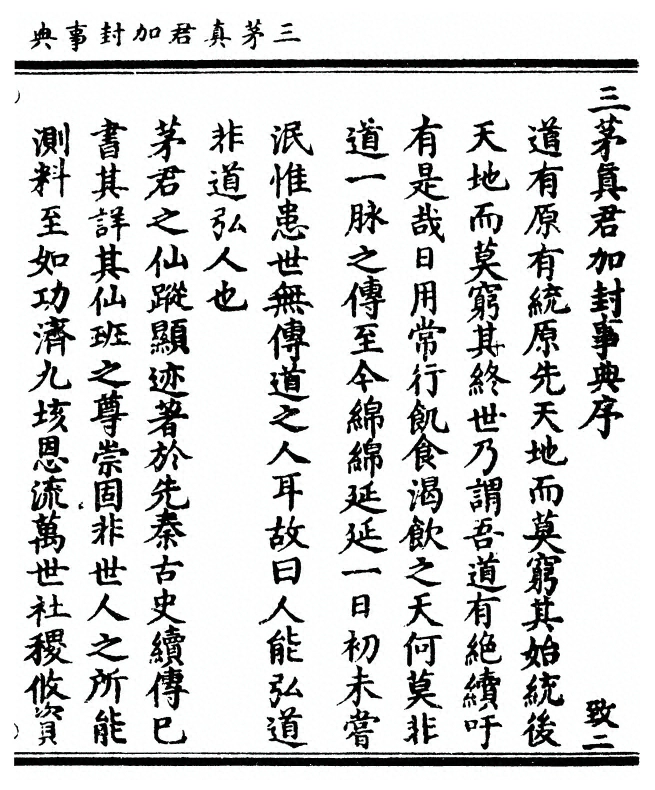 三茅真君加封事典
三茅真君加封事典序 致二
道有原有統原先天地而莫窮其始統後
天地而莫窮其終世乃謂吾道有絶續吁
有是哉日用常行飢食渴飲之天何莫非
道一脉之傳至今綿綿延延一日初未嘗
泯惟患世無傳道之人耳故曰人能弘道
非道弘人也
茅君之仙蹤顯迹著於先秦古史續傳巳
書其詳其仙班之尊崇固非世人之所能
測料至如功濟九垓恩流萬世社稷攸資